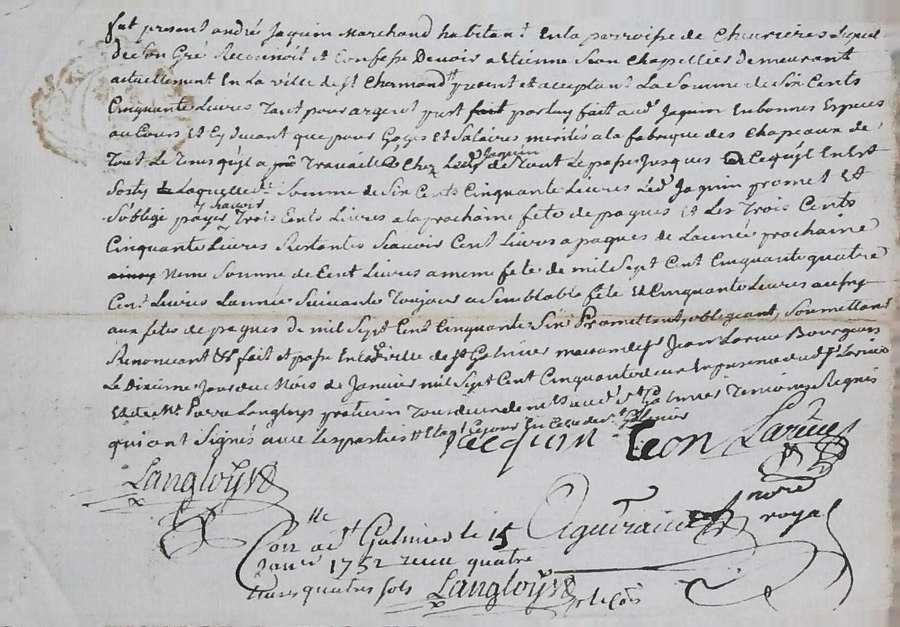 fut present andré Jaquin Marchand habitant En la parroisse de Chevrieres Lequel
de son Gré Reconnoit et Confesse Devoir a etienne Leon Chapellier demeurant
actuellement En la ville de st Chamond present et acceptant La Somme de Six Cents
Cinquante Livres Tant pour argent prest fait par luy fait aud. Jaquin En bonnes Especes
au Cours Et Cy devant que pour Gages Et Salaires merités a la fabrique des Chapeaux de
Tout Le Tems qu'il a Travaillé Chez Led. Jaquin de Tout Le passé Jusques a Ce qu'il En Est
Sorty Laquelle Somme de Six Cents Cinquante Livres Led. Jaquin promet Et
S'oblige payer Scavoir Trois Cents Livres a la prochaine fete de paques Et Les Trois Cents
Cinquante Livres Restantes Scavoir Cent Livres a paques de L'année prochaine
meme Somme de Cent Livres a meme fete de mil Sept Cent Cinquante quatre
Cent Livres L'année Suivante Toujour a Semblable fete Et Cinquante Livres aussy
aux fetes de paques de mil Sept Cent Cinquante Six Promettant, obligeant, Soumettant
Renoncant fait et passé En la ville de st Galmier maison de Sr Jean Larive Bourgeois
Le Jour du Mois de Janvier mil Sept Cent Cinquante deux En presence dud. Sr Larive
Et de Me Langloys praticien aud. st Galmier Temoins Requis
qui ont Signés avec Les parties
Jacquin Leon Larive
Langloys
nore
royal
Con lle a st Galmier le 15
Janer 1752 recu quatre
livres quatres sols Langloys